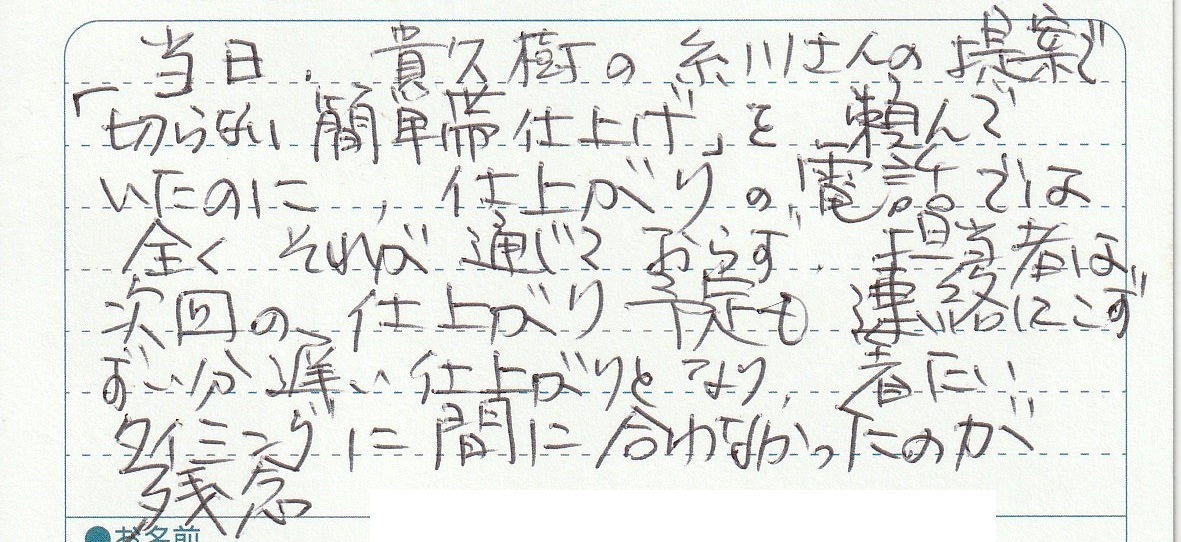 当日、貴久樹の糸川さんの提案で
「切らない簡単帯仕上げ」を頼んで
いたのに、仕上がりの電話では
全くそれが通じておらず、担当者は
次回の仕上がり予定も連絡にこず
ずい分遅い仕上がりとなり、着たい
タイミングに間に合わなかったのが
残念
●お名前